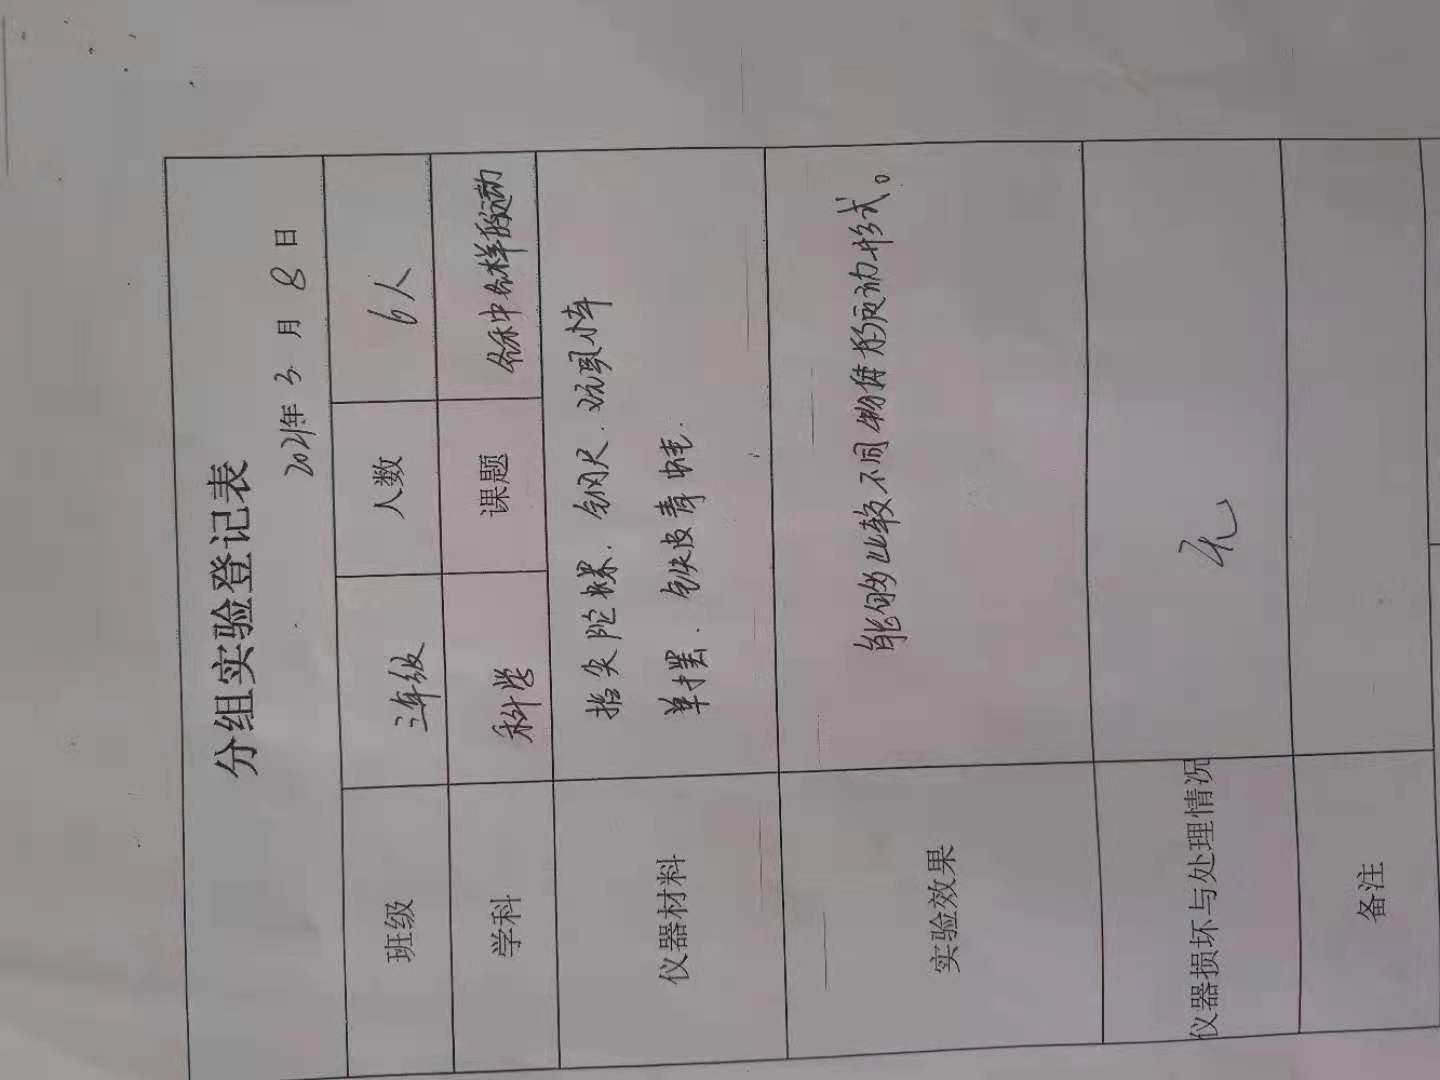 分组实验登记表
2021年 3 月 8 日
班级 三年级 人数 6人
学科 科学 课题 各种各样的运动
仪器材料 指尖陀螺、钢尺、玩具车
单摆、铁皮青蛙.
实验效果 能够比较不同物体的运动形式。
仪器损坏与处理情况 无
备注